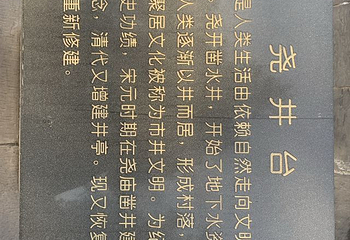 尧井台
是人类生活由依赖自然走向文明
。尧开凿水井，开始了地下水资
人类逐渐以井而居，形成村落，
聚居文化被称为市井文明。为纪
史功绩，宋元时期在尧庙凿井建
念，清代又增建井亭。现又恢复
重新修建。